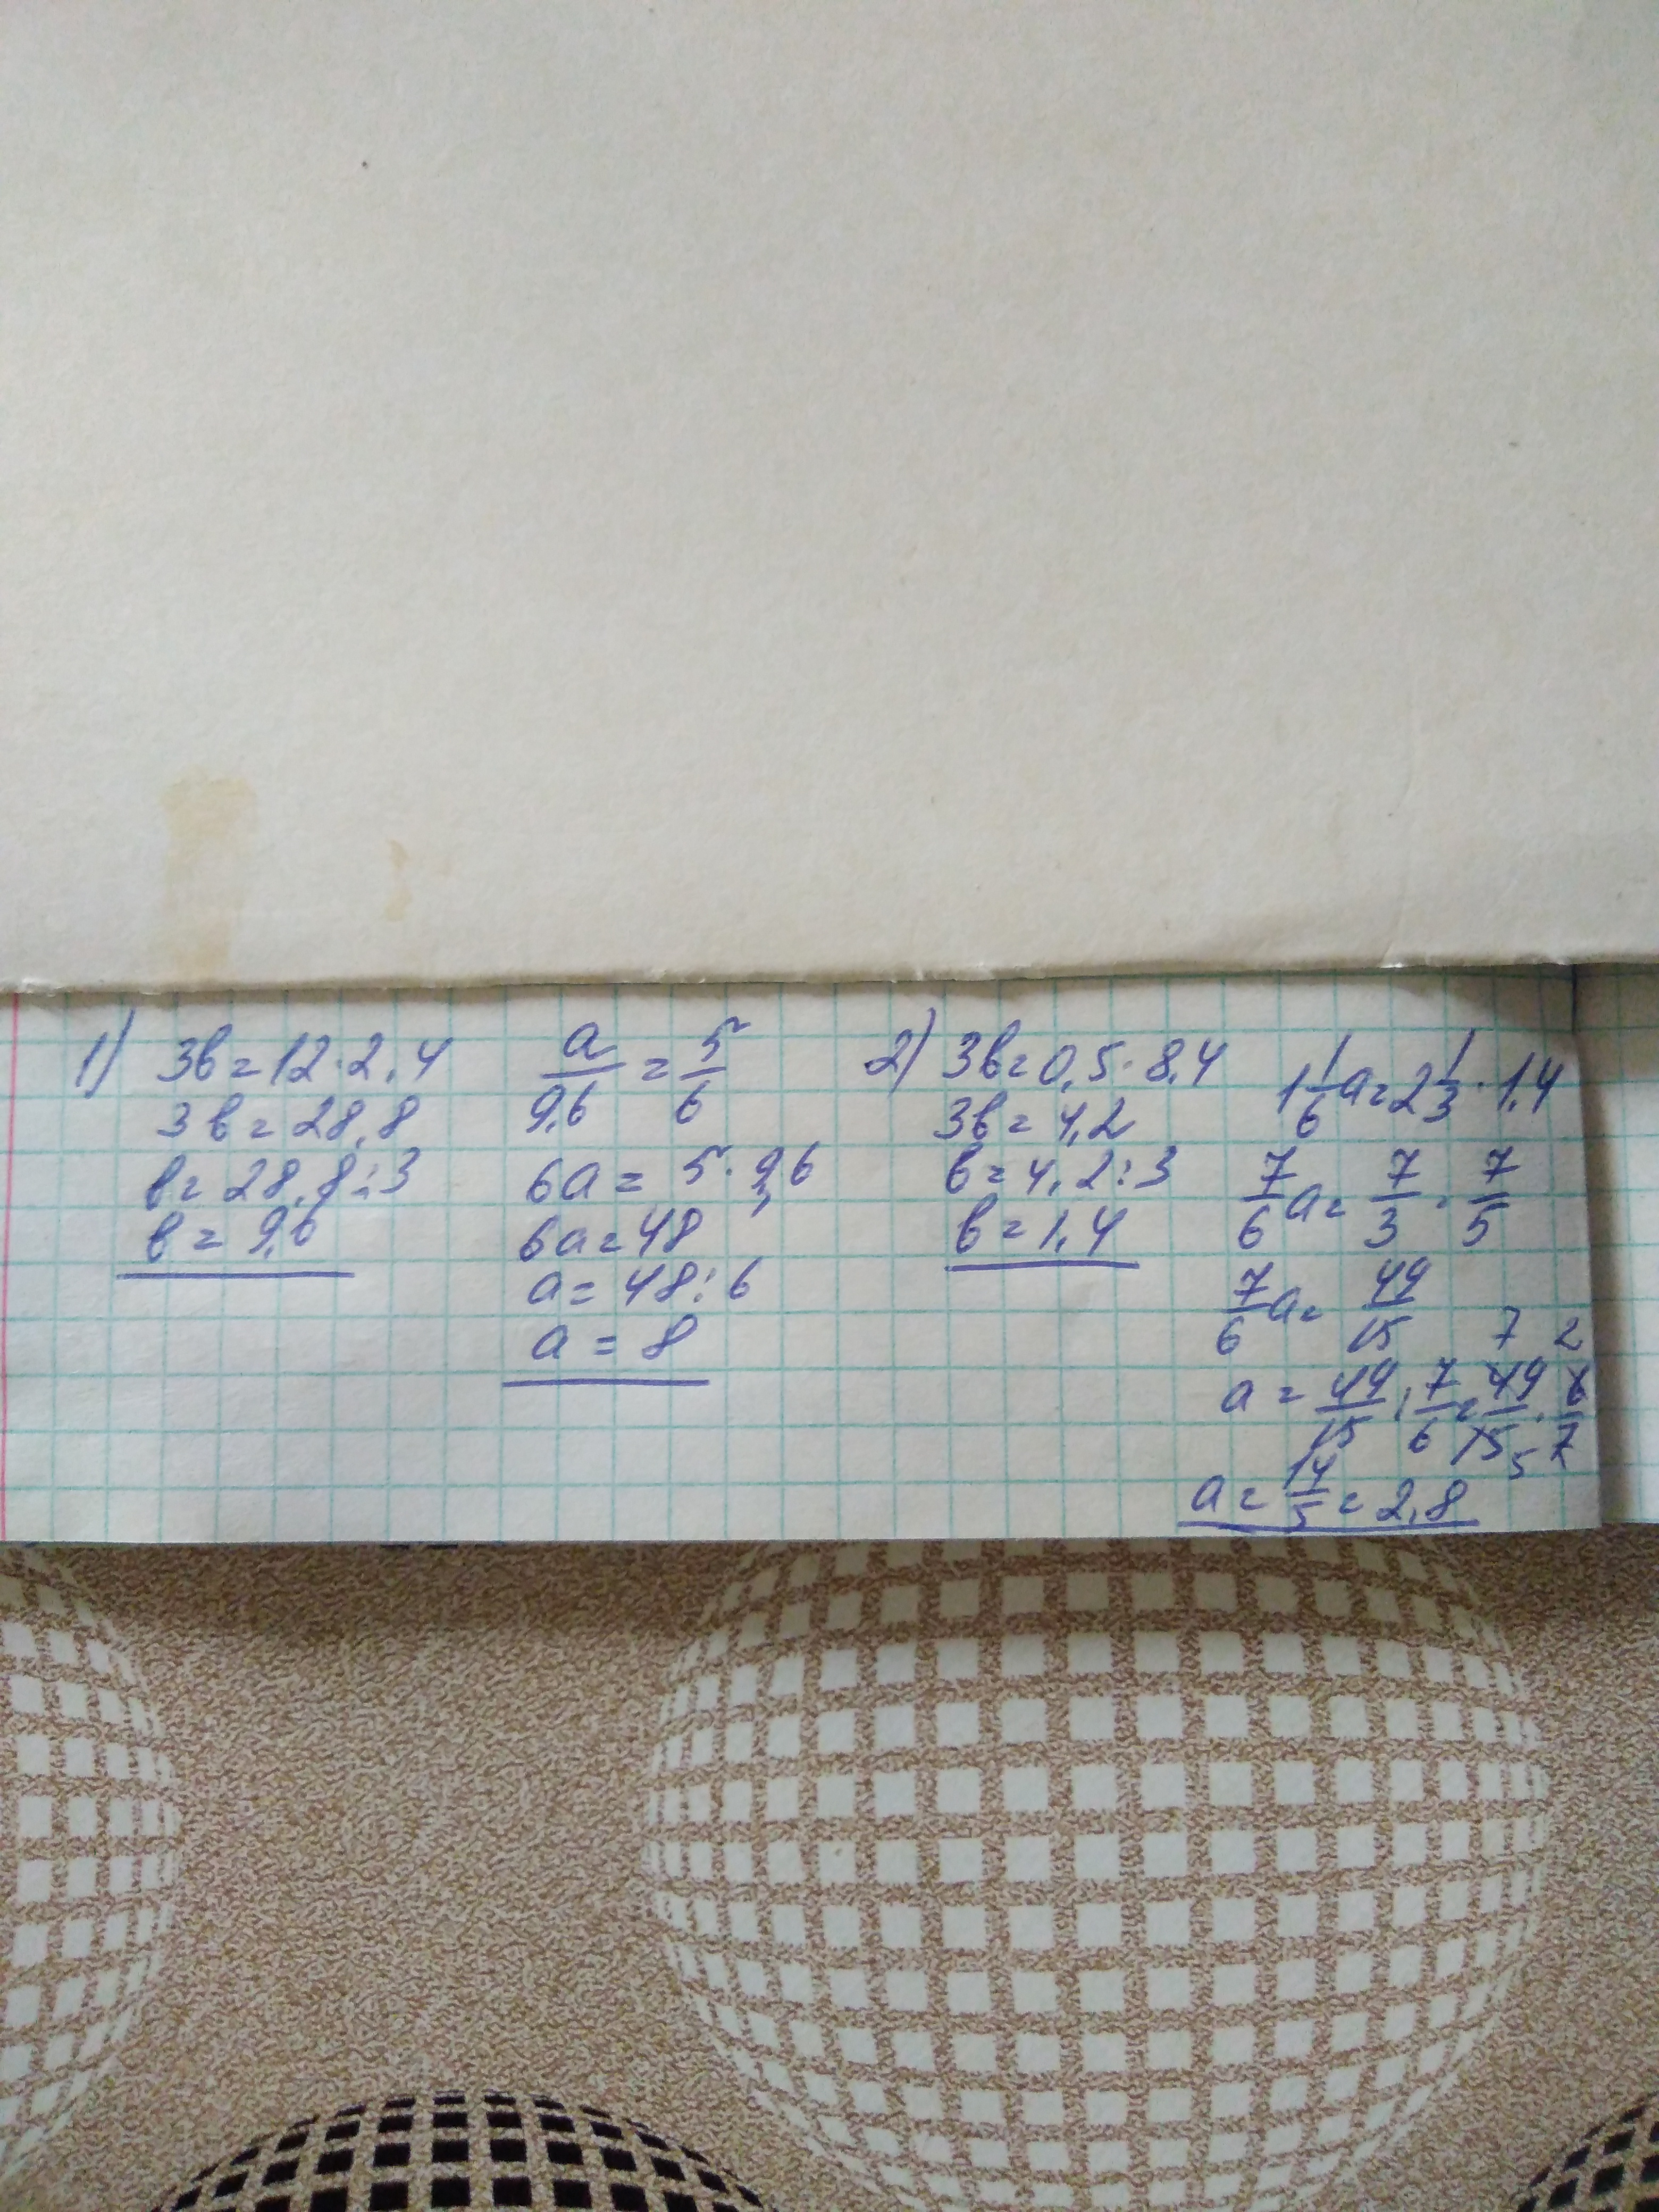 1) 3в=12·2,4
3в=28,8
в=28,8:3
в=9,6
a/9,6=5/6
6a=5·9,6
6a=48
a=48:6
a=8
2) 3в=0,5·8,4
3в=4,2
в=4,2:3
в=1,4
1 1/6 a=2 1/3·1,4
7/6 a=7/3·7/5
7/6 a=49/15
7 2
a=49/15:7/6=49/15·6/7
5
a=14/5=2,8